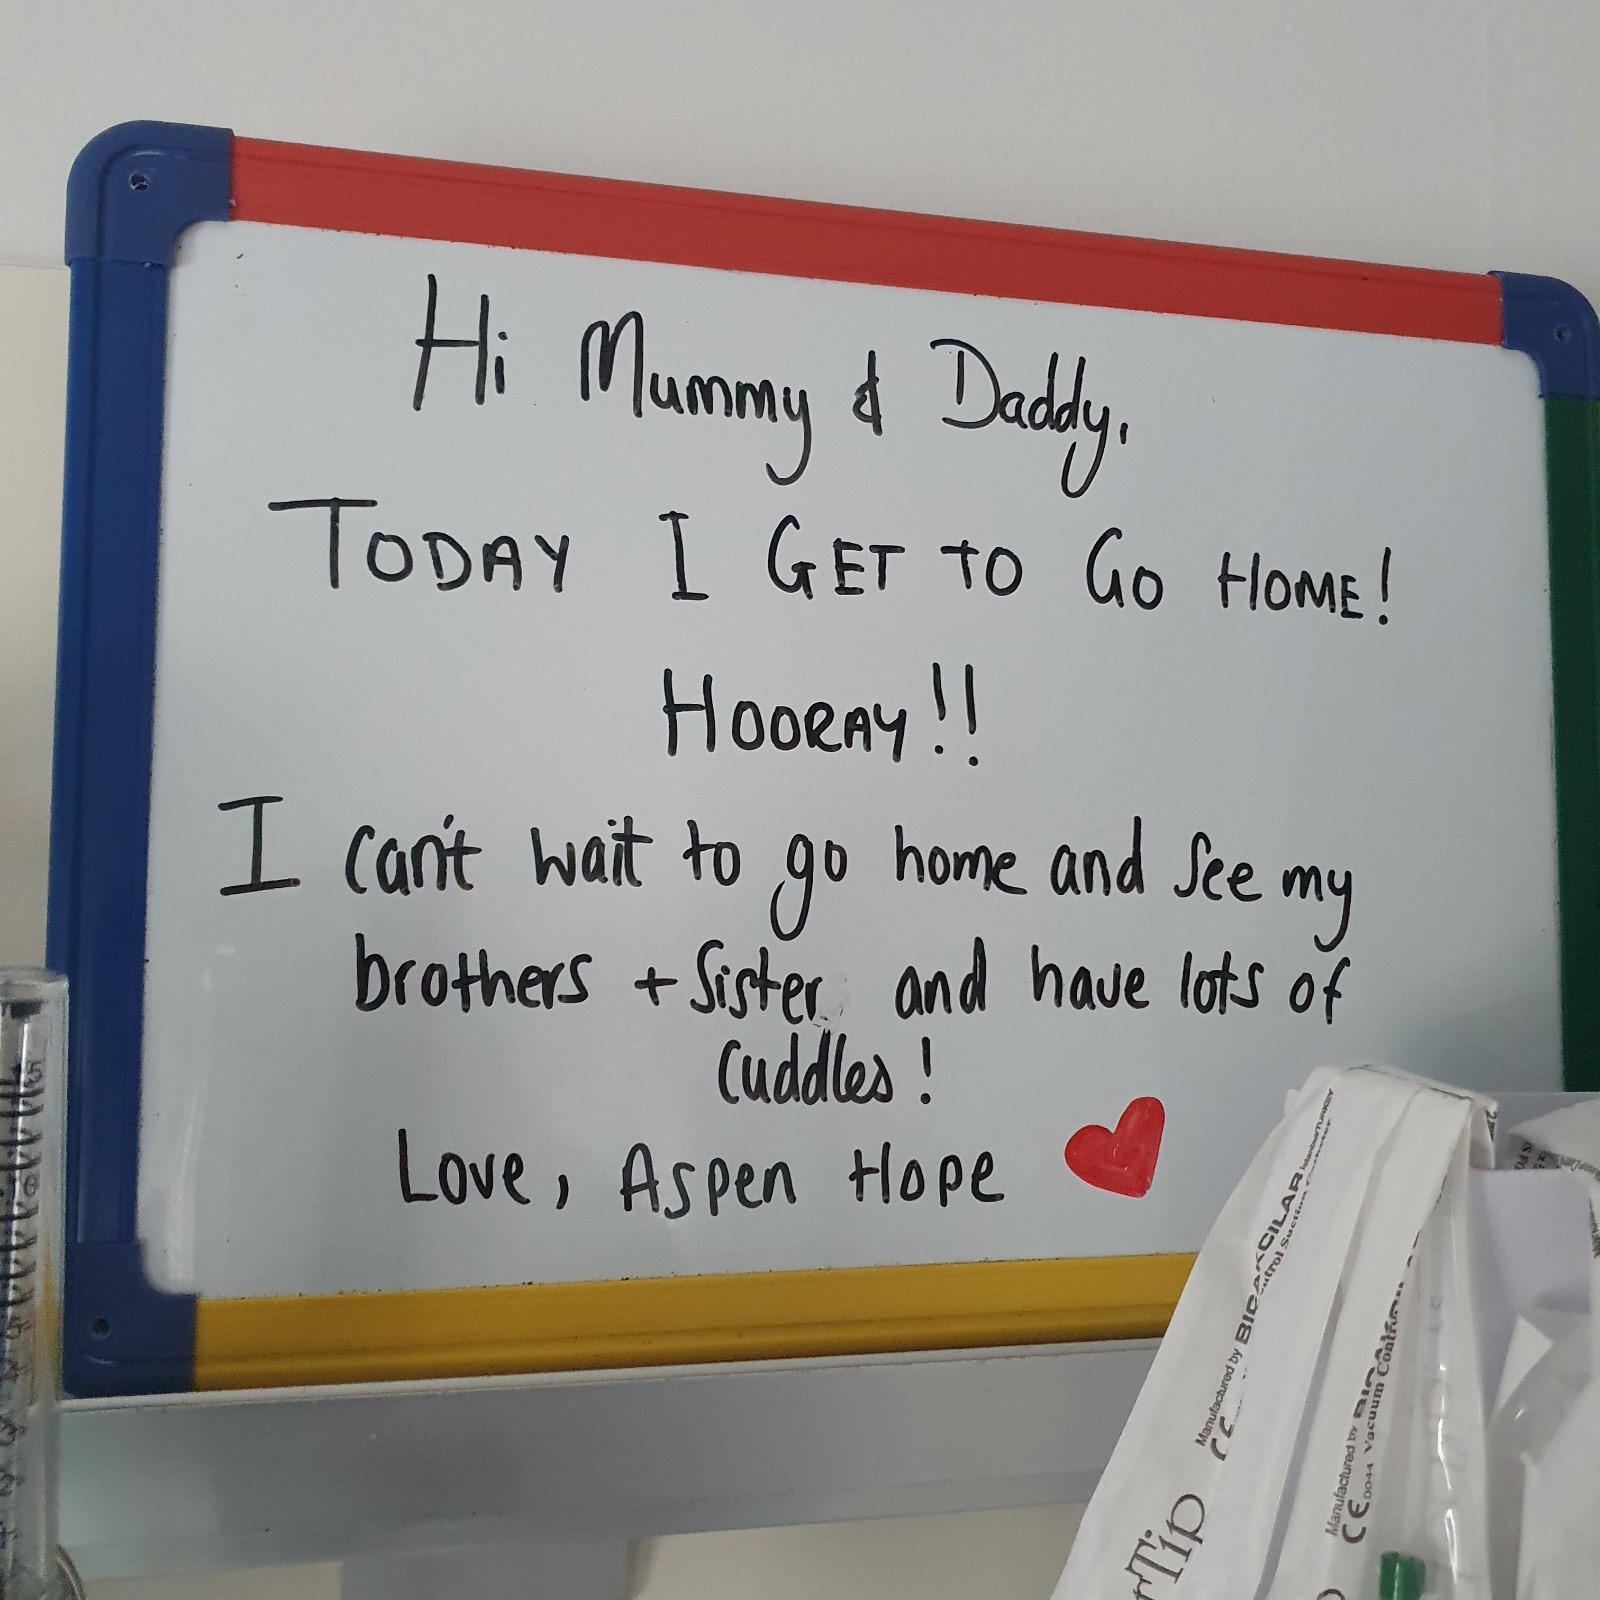 Hi Mummy & Daddy,
TODAY I GET TO GO HOME!
HOORAY!!
I can't wait to go home and see my
brothers + sister and have lots of
cuddles!
Love, Aspen Hope
Manufactured by BIÇAKCILAR
Control Suction Catheter
CE
Manufactured by
CE 0044 Vacuum Control
rTip